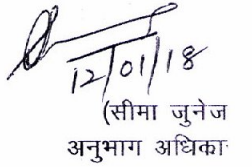 12/01/18
(सीमा जुनेज
अनुभाग अधिका